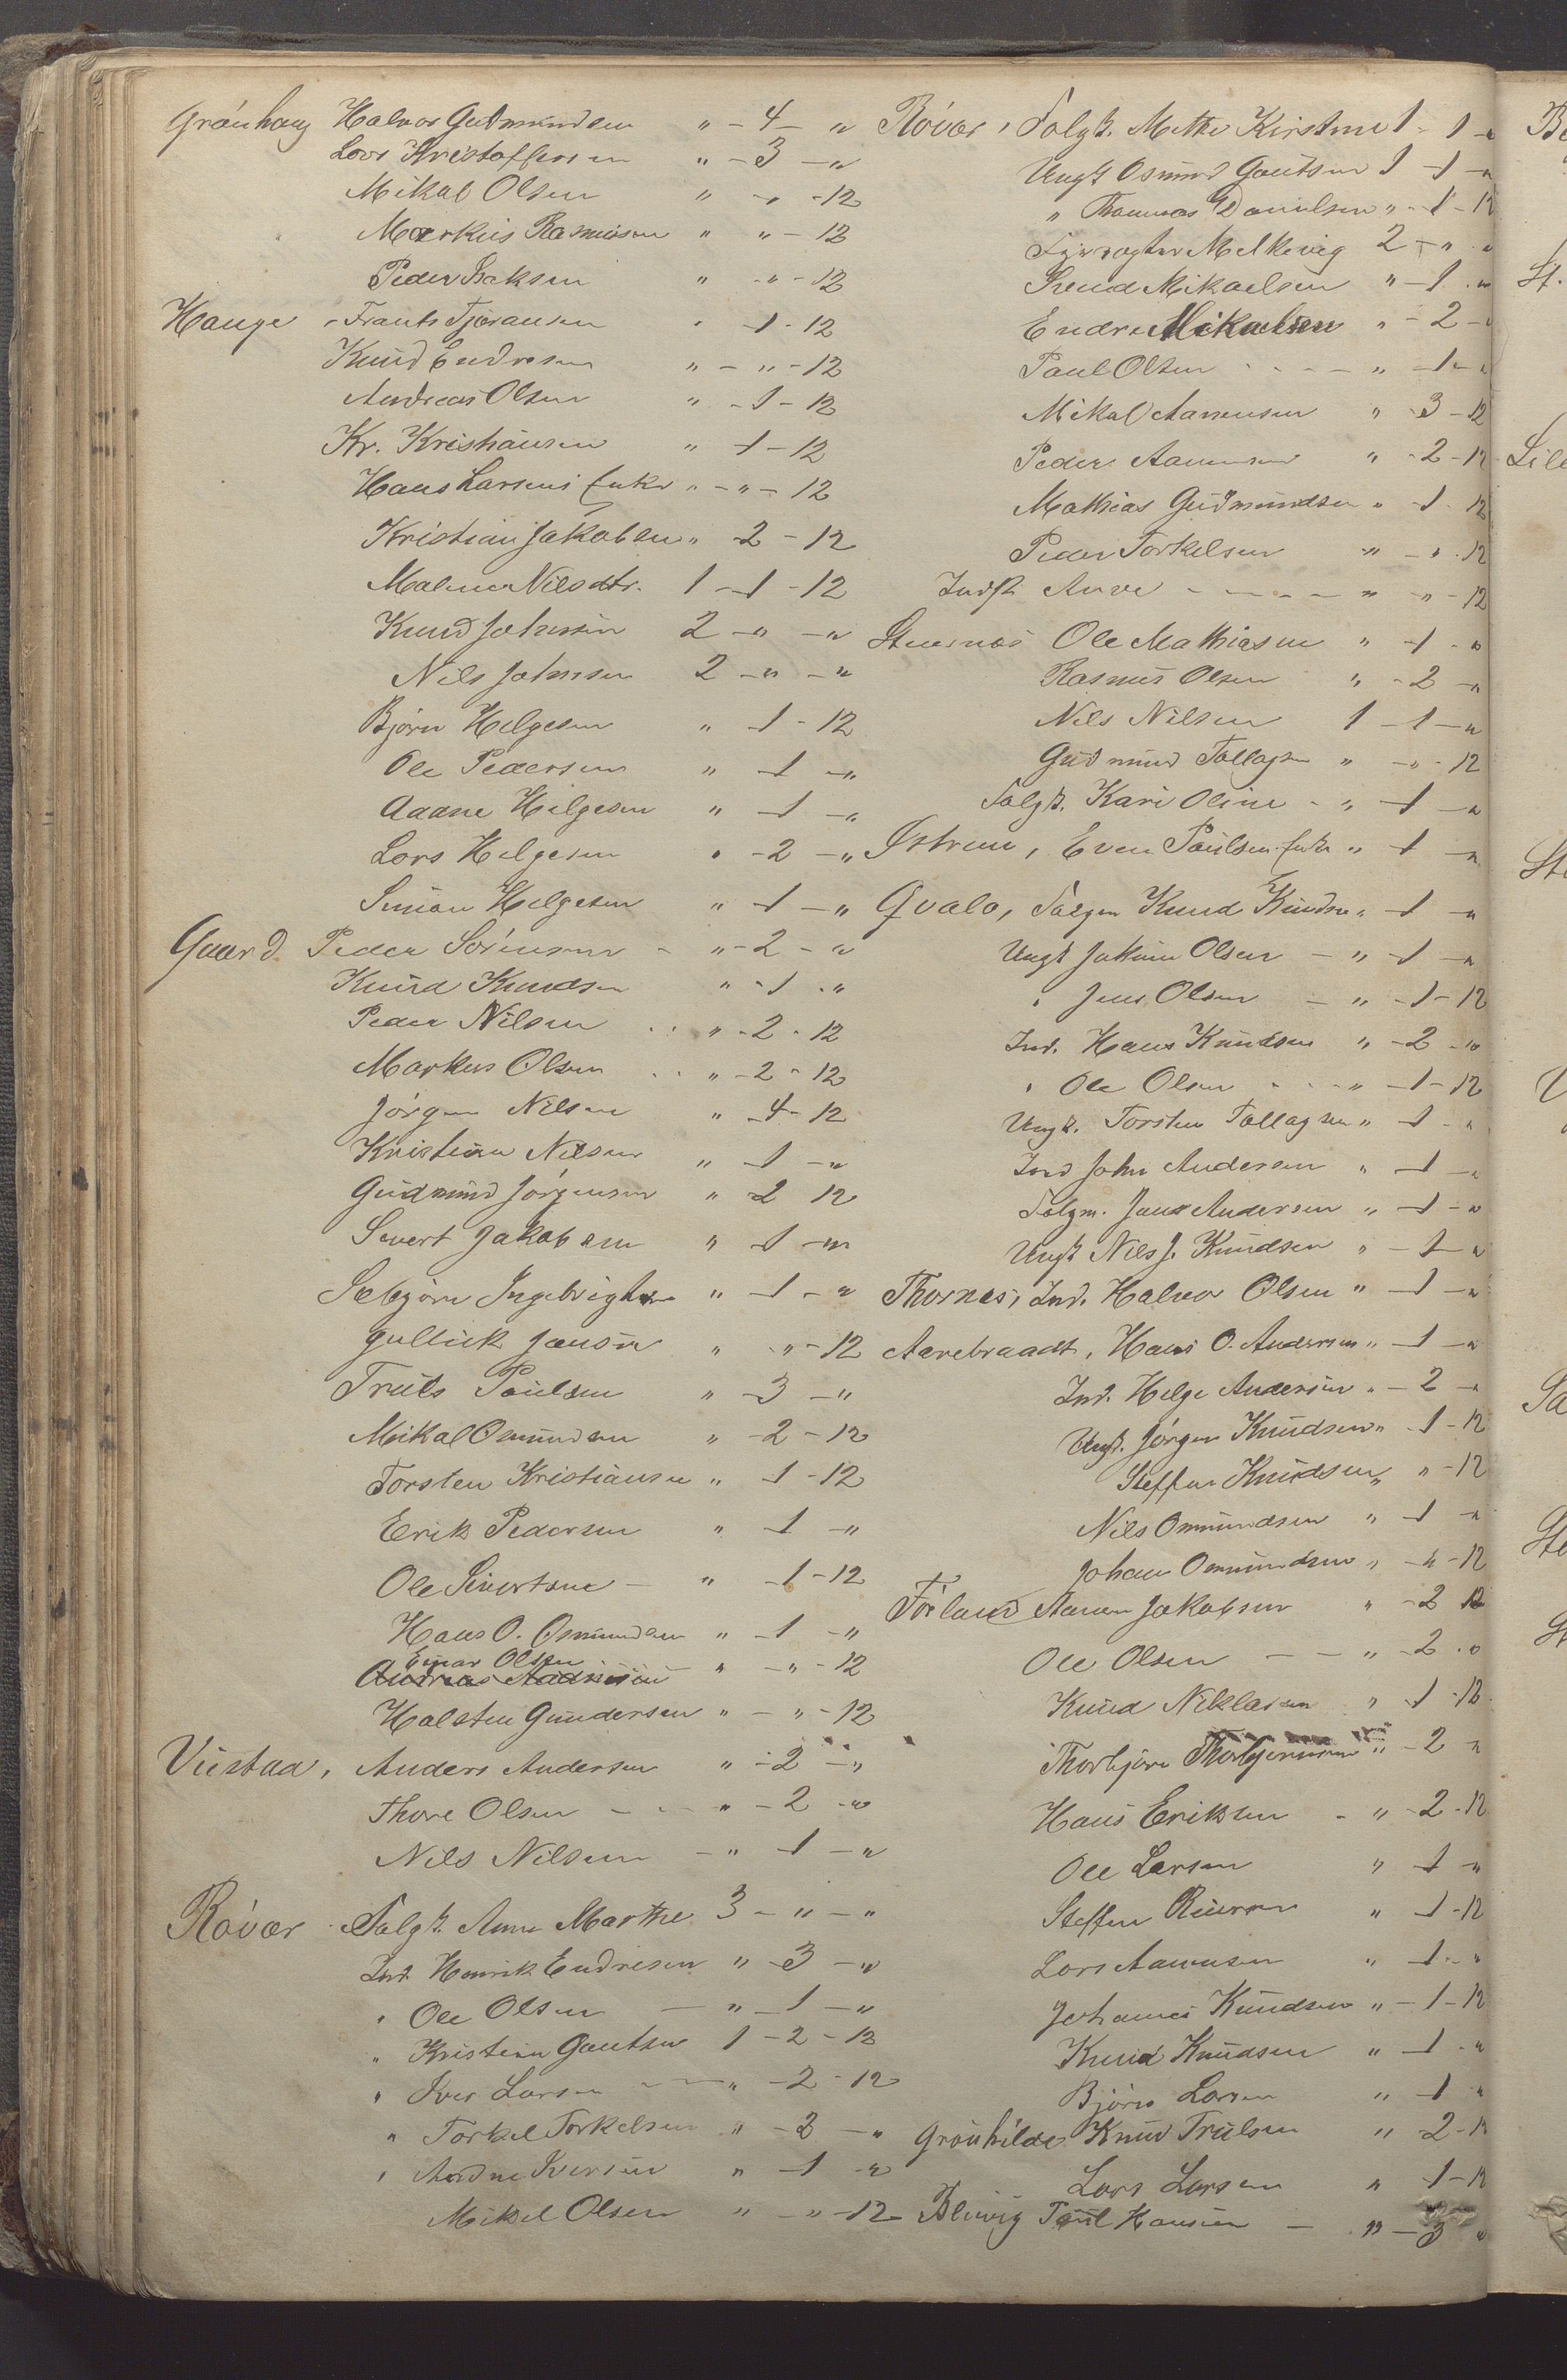 Grönhaug Halvor Gudmundsen " - 4 - "
Lars Kristoffersen " - 3 - "
Mikal Olsen " - " - 12
Markus Rasmusen " " - 12
Peder Isaksen " - " - 12
Hauge - Frants Tjöransen " 1 - 12
Knud Endresen " - " - 12
Andreas Olsen " - 1 - 12
Kr. Kristiansen " - 1 - 12
Hans Larsens Enke " - " - 12
Kristian Jakobsen " 2 - 12
Malene Nilsdtr. 1 - 1 - 12
Knud Johnsen 2 - " - "
Nils Johnsen 2 - " - "
Björn Helgesen " - 1 - 12
Ole Pedersen " - 1 - "
Aaane Helgesen " - 1 - "
Lars Helgesen " - 2 - "
Simon Helgesen " - 1 - "
Gaard. Peder Sörensen - " - 2 - "
Knud Knudsen " - 1 - "
Peder Nilsen . . " - 2 - 12
Markus Olsen . . " - 2 - 12
Jörgen Nilsen " - 4 - 12
Kristian Nilsen " - 1 - "
Gudmund Jörgensen " - 2 12
Sivert Jakobsen " - 1 - "
Sebjörn Ingebrigtsen " - 1 - "
Gullick Jansen " - " - 12
Truls Paulsen " - 3 - "
Mikal Osmundsen " - 2 - 12
Torsten Kristiansen " - 1 - 12
Erik Pedersen " - 1 - "
Ole Sivertsen - " - 1 - 12
Hans O. Osmundsen " - 1 - "
Einar Olsen
Andreas " - " - 12
Halsten Gundersen " - " - 12
Viestad, Anders Andersen " - 2 - "
Thore Olsen - - " - 2 - "
Nils Nilsen - " - 1 - "
Rövær - Folgk. Anne Marthe 3 - " - "
Ind. Henrik Endresen " - 3 - "
" Ole Olsen - " - 1 - "
" Kristian Gautsen 1 - 2 - 12
" Iver Larsen - - " - 2 - 12
" Torkel Torkelsen " - 2 - "
" Iversen " - 1 - "
Mikel Olsen " - " - 12
Rövær, Folgk. Mette Kirstine 1 - 1 - "
Ungk Osmund Gautsen 1 - 1 - "
" Thomas Danielsen " - 1 - 12
Fyrvogter Melkevig 2 - " - "
Svend Mikaelsen " - 1 - "
Endre Mikalsen " - 2 - "
Paul Olsen - - - " - 1 - "
Mikal Aanensen " - 3 - 12
Peder Aanensen " - 2 - 12
Mathias Gudmundsen " - 1 - 12
Peder Torkelsen " - " - 12
Indst Anve - - - - " - " - 12
Ole Mathiasen " - 1 - "
Rasmus Olsen " - 2 - "
Nils Nilsen 1 - 1 - "
Gudmund Tollagsen " - " - 12
Folgk. Kari Oline - " - 1 - "
Östrem, Even Paulsen Enke " - 1 - "
Qvalo, Folgm Knud Knudsen " - 1 - "
Ungk Jakim Olsen - " - 1 - "
" Jens Olsen - " - 1 - 12
Ind. Hans Knudsen " - 2 - "
" Ole Olsen - - " - 1 - 12
Ungk. Torsten Tollagsen " - 1 - "
Ind John Andersen " - 1 - "
Folgm. Jens Andersen " - 1 - "
Ungk Nils J. Knudsen " - 1 - "
Thornes, Ind. Halvor Olsen " - 1 - "
Aarebraadt, Hans O. Andersen " - 1 - "
Ind. Helge Andersen " - 2 - "
Ungk. Jörgen Knudsen " - 1 - 12
Steffen Knudsen " " - 12
Nils Ommundsen " - 1 - "
Johan Ommundsen " - " - 12
Förland Aanen Jakobsen " - 2 12
Ole Olsen - - " - 2 - "
Knud Niklasen " - 1 - 12
Thorbjörn Thorbjörnsen " - 2 - "
Hans Eriksen - " - 2 - 12
Ole Larsen " - 1 - "
Steffen " - 1 - 12
Lars Aanensen " - 1 - "
Johannes Knudsen " - 1 - 12
Knud Knudsen " - 1 - "
Björn Larsen " - 1 - "
Grönhilde Knud Trulsen " 2 - 12
Lars Larsen " 1 - 12
Blivig Paul Hansen - " - 3 "